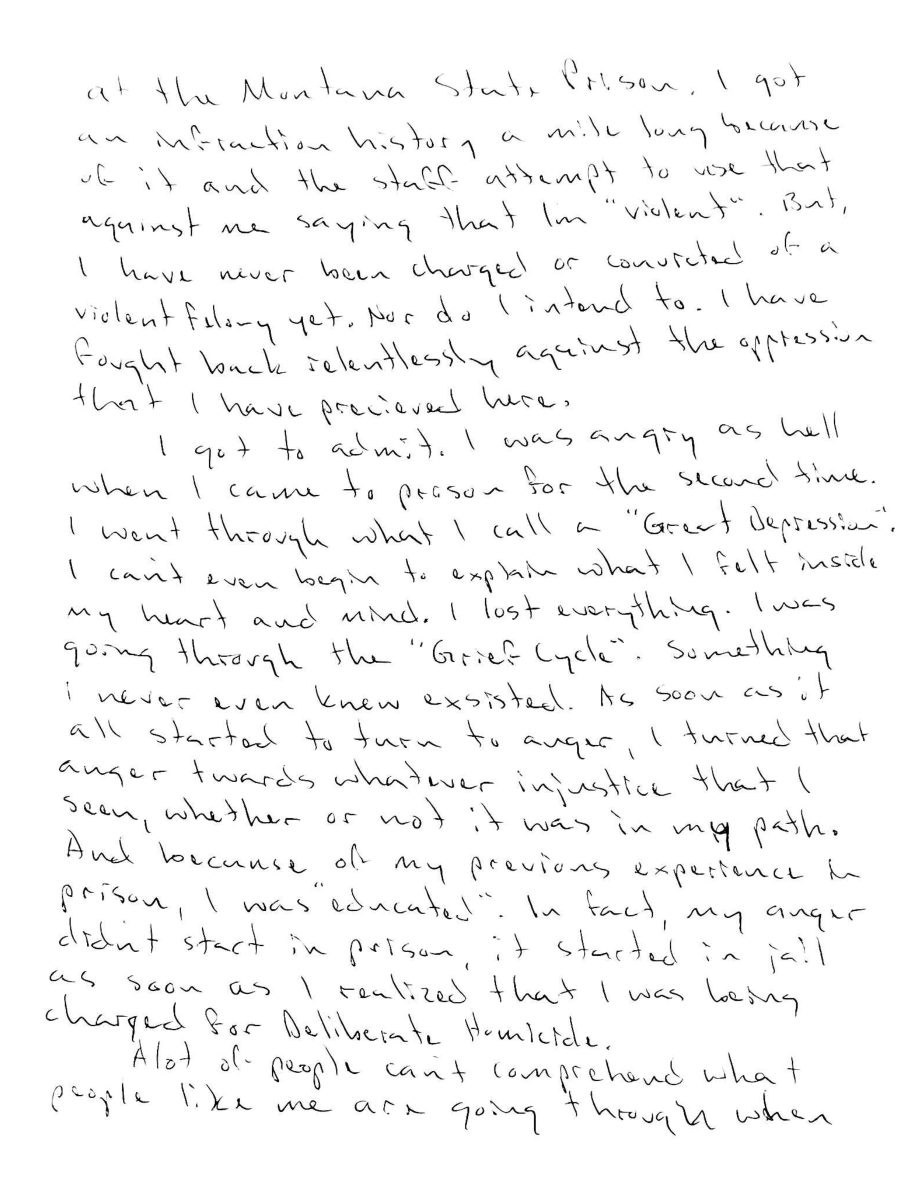 at the Montana State Prison. I got
an infraction history a mile long because
of it and the staff attempt to use that
against me saying that Im "violent". But,
I have never been charged or convicted of a
violent felony yet. Nor do I intend to. I have
fought back relentlessly against the oppression
that I have precieved here.
I got to admit. I was angry as hell
when I came to prison for the second time.
I went through what I call a "Great Depression".
I can't even begin to explain what I felt inside
my heart and mind. I lost everything. I was
going through the "Grief Cycle". Something
i never even knew exsisted. As soon as it
all started to turn to anger, I turned that
anger twards whatever injustice that I
seen, whether or not it was in my path.
And because of my previous experience in
prison, I was "educated". In fact, my anger
didnt start in prison, it started in jail
as soon as I realized that I was being
charged for Deliberate Homicide.
Alot of people can't comprehend what
people like me are going through when